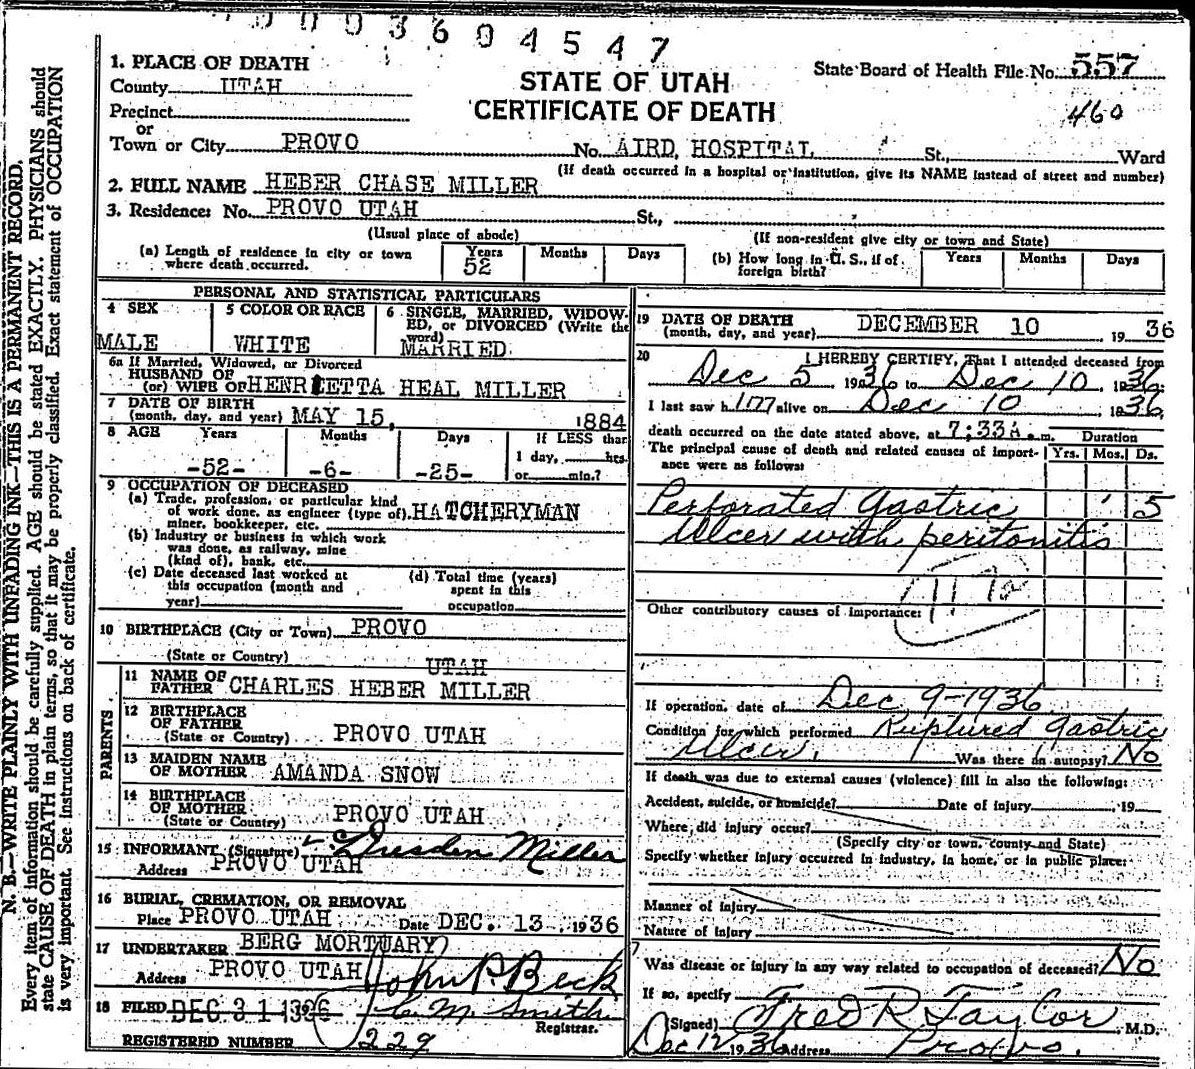 0003604547
1. PLACE OF DEATH
County UTAH
Precinct
or
Town or City PROVO
STATE OF UTAH
CERTIFICATE OF DEATH
State Board of Health File No. 557
460
No. AIRD, HOSPITAL St., Ward
(If death occurred in a hospital or institution, give its NAME instead of street and number)
2. FULL NAME HEBER CHASE MILLER
3. Residence: No. PROVO UTAH St.,
(Usual place of abode) (If non-resident give city or town and State)
(a) Length of residence in city or town where death occurred. Years 52 Months Days
(b) How long in U. S., if of foreign birth? Years Months Days
PERSONAL AND STATISTICAL PARTICULARS
4 SEX MALE
5 COLOR OR RACE WHITE
6 SINGLE, MARRIED, WIDOWED, or DIVORCED (Write the word) MARRIED
6a If Married, Widowed, or Divorced
HUSBAND OF
(or) WIFE OF HENRIETTA HEAL MILLER
7 DATE OF BIRTH
(month, day, and year) MAY 15, 1884
8 AGE Years Months Days If LESS than
1 day, hrs.
-52- -6- -25- or min.?
9 OCCUPATION OF DECEASED
(a) Trade, profession, or particular kind
of work done, as engineer (type of), HATCHERYMAN
miner, bookkeeper, etc.
(b) Industry or business in which work
was done, as railway, mine
(kind of), bank, etc.
(c) Date deceased last worked at this occupation (month and year)
(d) Total time (years) spent in this occupation
10 BIRTHPLACE (City or Town) PROVO
(State or Country) UTAH
PARENTS
11 NAME OF
FATHER CHARLES HEBER MILLER
12 BIRTHPLACE
OF FATHER
(State or Country) PROVO UTAH
13 MAIDEN NAME
OF MOTHER AMANDA SNOW
14 BIRTHPLACE
OF MOTHER
(State or Country) PROVO UTAH
15 INFORMANT (Signature) Dresden Miller
Address PROVO UTAH
16 BURIAL, CREMATION, OR REMOVAL
Place PROVO UTAH Date DEC. 13 1936
17 UNDERTAKER BERG MORTUARY
Address PROVO UTAH John P. Beck
18 FILED DEC 31 1936 C M Smith
Registrar.
REGISTERED NUMBER 229
19 DATE OF DEATH
(month, day, and year) DECEMBER 10 1936
20 I HEREBY CERTIFY, That I attended deceased from
Dec 5, 1936 to Dec 10, 1936
I last saw him alive on Dec 10 1936,
death occurred on the date stated above, at 7;33A.m. Duration
The principal cause of death and related causes of importance were as follows: Yrs. Mos. Ds.
Perforated Gastric 5
Ulcer with peritonitis
Other contributory causes of importance:
If operation, date of Dec 9-1936
Condition for which performed Ruptured Gastric
Ulcer. Was there an autopsy? No
If death was due to external causes (violence) fill in also the following:
Accident, suicide, or homicide? Date of injury 19
Where did injury occur?
(Specify city or town, county and State)
Specify whether injury occurred in industry, in home, or in public place:
Manner of injury
Nature of injury
Was disease or injury in any way related to occupation of deceased? No
If so, specify
(Signed) Fred R Taylor M.D.
Dec 12 1936 Address Provo.
N. B.—WRITE PLAINLY WITH UNFADING INK—THIS IS A PERMANENT RECORD.
Every item of information should be carefully supplied. AGE should be stated EXACTLY. PHYSICIANS should
state CAUSE OF DEATH in plain terms, so that it may be properly classified. Exact statement of OCCUPATION
is very important. See instructions on back of certificate.